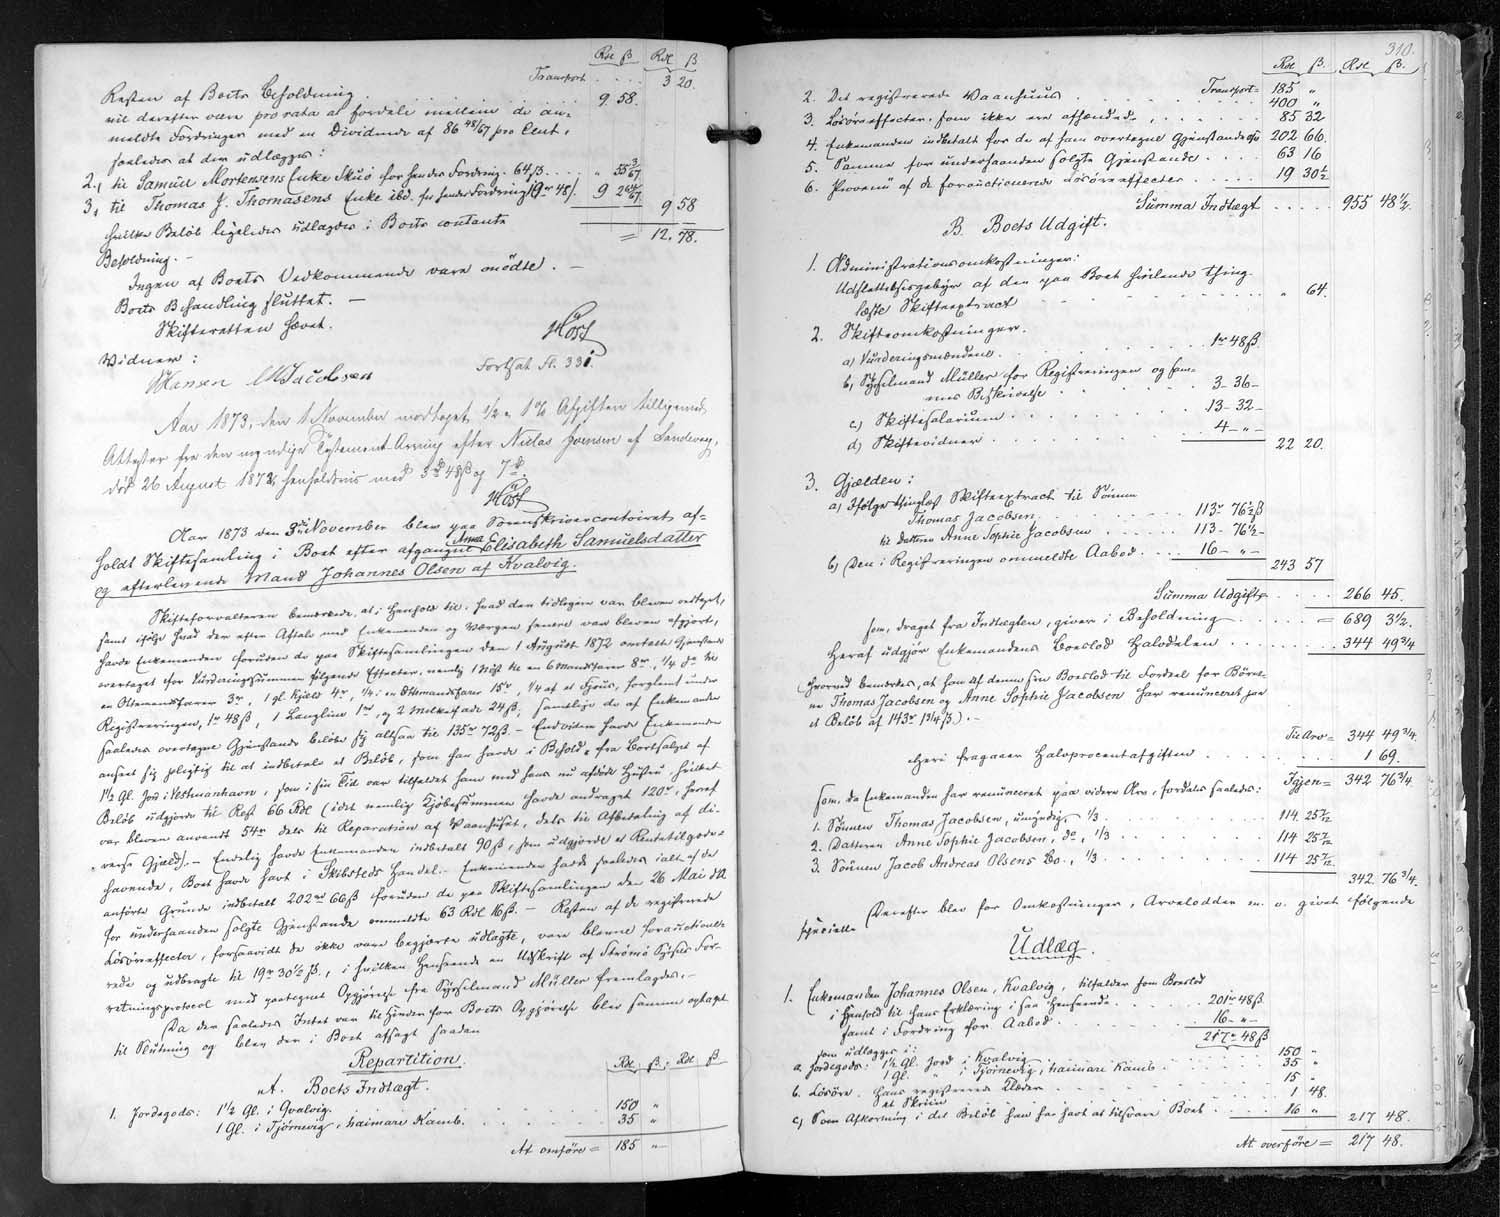 Rdl ß Rdl ß
Transport . . . . 3 20.
Resten af Boets Beholdning . . . . . 9 58.
vil derefter være pro rata at fordele mellem de an-
meldte Fordringer med en Dividende af 86 48/67 pro Cent,
saaledes at der udlægges:
2, til Samuel Mortensens Enke Skuö for hendes Fordring 64 ß . . . " 55 3/67
3, til Thomas J. Thomasens Enke ibd. for hendes Fordring (9r 48) 9 2 64/67
9 58
hvilke Beløb ligeledes udlægges i Boets contante = 12. 78.
Beholdning. —
Ingen af Boets Vedkommende vare mødte. —
Boets Behandling sluttet. —
Skifteretten hævet.
Höst
Vidner:
Hansen MJacobsen
Fortsat Fl. 331.
Aar 1873, den 1 November modtaget 1/2 & 1 % Afgiften tilligemed
Attester fra den myndige Testament-Arving efter Niclas Joensen af Sandevaag,
død 26 August 1873, henholdsvis med 3rd 48ß og 7rd.
Höst
Aar 1873 den 3die November blev paa Sorenskrivercontoiret af-
holdt Skiftesamling i Boet efter afgangne Anna Elisabeth Samuelsdatter
og efterlevende Mand Johannes Olsen af Kvalvig.
Skifteforvalteren bemærkede, at i Henhold til, hvad der tidligere var bleven vedtaget,
samt ifølge hvad der efter Aftale med Enkemanden og Værgen senere var bleven afgjort,
havde Enkemanden foruden de paa Skiftesamlingen den 1 August 1872 omtalte Gjenstande
overtaget for Vurderingssummen følgende Effecter, nemlig 1 Nöst til en 6 Mandsfarer 8rd, 1/4 do til
en Ottemandsfarer 3rd, 1 gl. Kjeld 4rd, 1/4 i en Ottemandsfarer 15rd, 1/4 af et Hjous, forglemt under
Registreringen, 1rd 48ß, 1 Langline 1rd, og 2 Melkefade 24ß, samtlige de af Enkemanden
saaledes overtagne Gjenstande beløbe sig altsaa til 135rd 72ß. — Endvidere havde Enkemanden
anseet sig pligtig til at indbetale et Beløb, som han havde i Behold fra Bortsalget af
1 1/2 Gl. Jord i Vestmanhavn, som i sin Tid var tilfaldet ham med hans nu afdøde Hustru, hvilket
Beløb udgjorde til Rest 66 Rdl (idet nemlig Kjøbesummen havde andraget 120rd, heraf
var bleven anvendt 54rd dels til Reparation af Vaanhuset, dels til Afbetaling af di-
verse Gjæld). — Endelig havde Enkemanden indbetalt 90ß, som udgjorde et Rentetilgode-
havende, Boet havde havt i Skibsteds Handel. Enkemanden havde saaledes ialt af de
anførte Grunde indbetalt 202rd 66ß foruden de paa Skiftesamlingen den 26 Mai d.A.
for underhaanden solgte Gjenstande ommeldte 63 Rdl 16ß. — Resten af de registrerede
Løsøreeffecter, forsaavidt de ikke vare begjærte udlagte, vare blevne forauctione-
rede og udbragte til 19rd 30 1/2 ß, i hvilken Henseende en Udskrift af Strömö Syssels For-
retningsprotocol med paategnet Opgjørelse fra Sysselmand Müller fremlagdes. —
Da der saaledes Intet var til Hinder for Boets Opgjørelse blev samme optaget
til Slutning og blev der i Boet afsagt saadan
Repartition.
Rdl ß Rdl ß
A. Boets Indtægt.
1. Jordegods: 1 1/2 Gl. i Qvalvig . . . . 150 "
1 Gl. i Tjørnevig, haimari Kamb . . . . 35 "
At omføre = 185 "
310.
Rdl ß. Rdl ß.
Transport = 185 "
2. Det registrerede Vaanhuus . . . . 400 "
3. Løsøreeffecter, som ikke ere afhændede, . . . . 85 32
4. Enkemanden indbetalt for de af ham overtagne Gjenstande osv 202 66.
5. Samme for underhaanden solgte Gjenstande . . . . 63 16
6. Provenü af de forauctionerede Løsøreeffecter . . . . 19 30 1/2
Summa Indtægt . . . . 955 48 1/2.
B. Boets Udgift.
1. Administrationsomkostninger:
Udslettelsesgebyr af den paa Boet hvilende thing-
læste Skifteextract . . . . " 64.
2. Skifteomkostninger.
a) Vurderingsmændene . . . . 1rd 48ß
b) Sysselmand Müller for Registreringen og sam-
mes Beskrivelse . . . . 3 - 36 -
c) Skiftesalarium . . . . 13 - 32 -
d) Skiftevidner . . . . 4 - " -
22 20.
3. Gjælden:
a) Ifølge thinglæst Skifteextract til Sønnen
Thomas Jacobsen . . . . 113rd 76 1/2 ß
til Datteren Anne Sophie Jacobsen . . . . 113 - 76 1/2 -
b) Den i Registreringen ommeldte Aabod . . . . 16 - " -
243 57
Summa Udgift . . . . 266 45.
som, draget fra Indtægten, giver i Beholdning . . . . = 689 3 1/2.
Heraf udgjør Enkemandens Boeslod Halvdelen . . . . 344 49 3/4
(hvorved bemærkes, at han af denne sin Boeslod til Fordeel for Børne-
ne Thomas Jacobsen og Anne Sophie Jacobsen har renunceret paa
et Beløb af 143rd 1 3/4 ß). —
Til Arv = 344 49 3/4.
Heri fragaaer Halvprocentafgiften . . . . 1 69.
Igjen = 342 76 3/4
som, da Enkemanden har renunceret paa videre Arv, fordeles saaledes:
1. Sønnen Thomas Jacobsen, umyndig, 1/3 . . . . 114 25 7/12
2. Datteren Anne Sophie Jacobsen, do, 1/3 . . . . 114 25 7/12
3. Sønnen Jacob Andreas Olsen do., 1/3 . . . . 114 25 7/12
342. 76 3/4.
Derefter blev for Omkostninger, Arvelodder m. v. givet følgende
specielle
Udlæg.
1. Enkemanden Johannes Olsen, Kvalvig, tilfalder som Boeslod
i Henhold til hans Erklæring i saa Henseende . . . . 201rd 48ß
samt i Fordring for Aabod . . . . 16 - " -
217rd 48ß
som udlægges i:
a. Jordegods: 1 1/2 Gl. Jord i Kvalvig . . . . 150 "
1 Gl. " i Tjørnevig, haimari Kamb . . . . 35 "
b. Løsøre. Hans registrerede Klæder . . . . 15 "
et Skriin . . . . 1 48.
c) Som Afkortning i det Beløb han har havt at tilsvare Boet . . . . 16 "
217 48.
At overføre = 217 48.